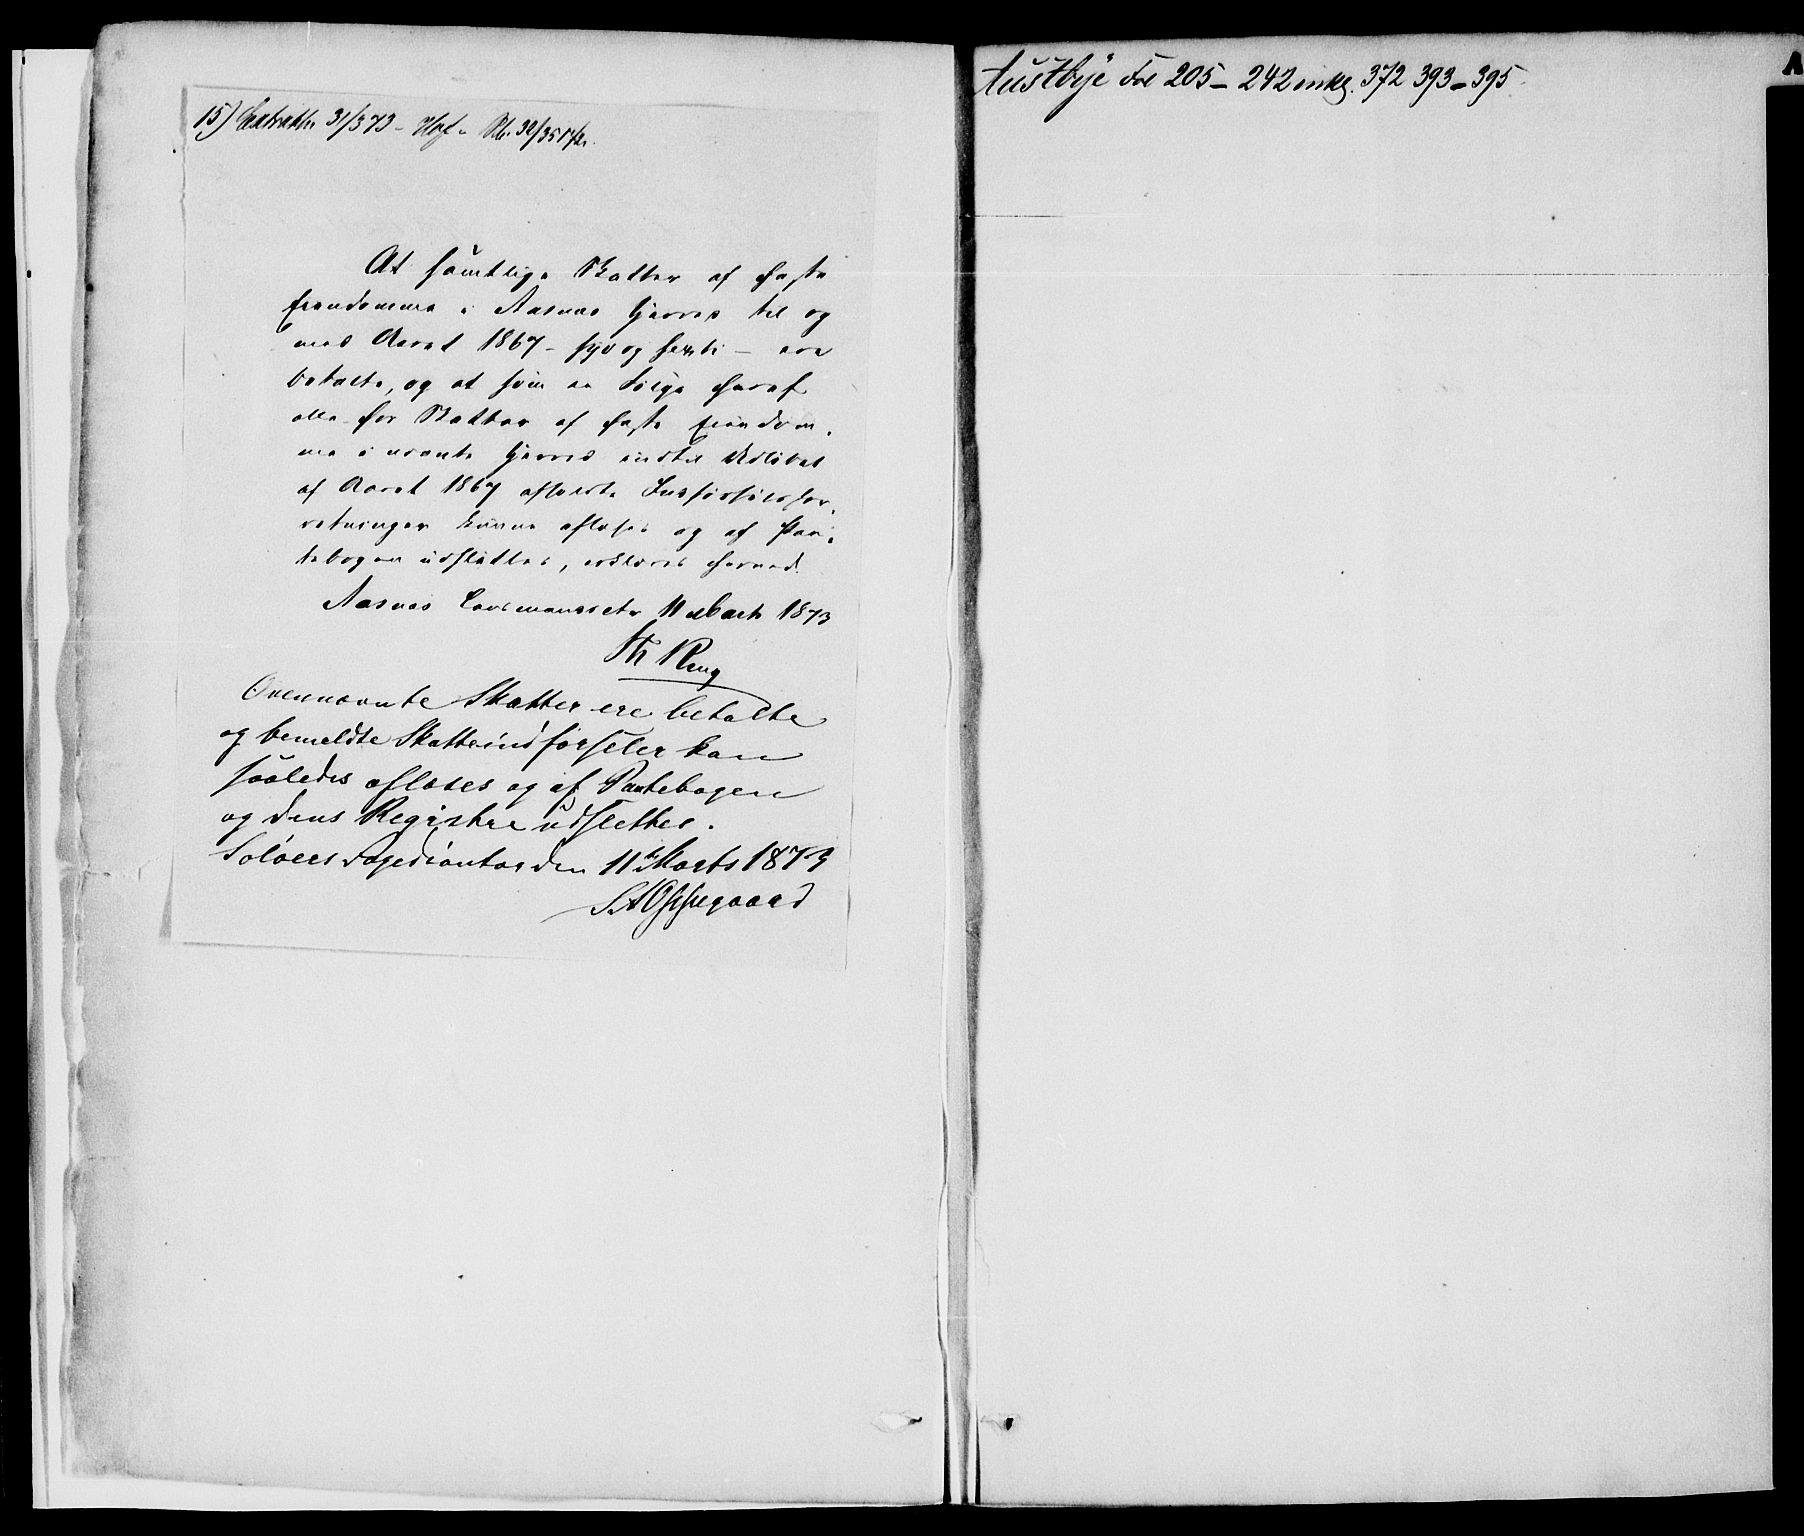 15) Extrath 31/3 73 - Hof
At samtlige Skatter af faste
Eiendomme i Aasnes Gjerres til og
med Aaret 1867 - syv og sexti - ere
betalte, og at som en Følge heraf
alle for Skatter af faste Eiendom-
me i nævnte Gjerres indtil Udløbet
af Aaret 1867 afholdte Indførselsfor-
retninger kunne aflæses og af Pan-
tebogen udslettes, erklæres herved.
Aasnes Lensmandsct. 11 Marts 1873
Th Ring
Ovennævnte Skatter ere betalte
og bemeldte Skatteindførseler kan
saaledes aflæses og af Pantebogen
og dens Registre udslettes.
Soløers Fogedcontor den 11te Marts 1873
S.A. Oppegaard
Austbye Fol 205 - 242 inkl. 372 393 - 395
A